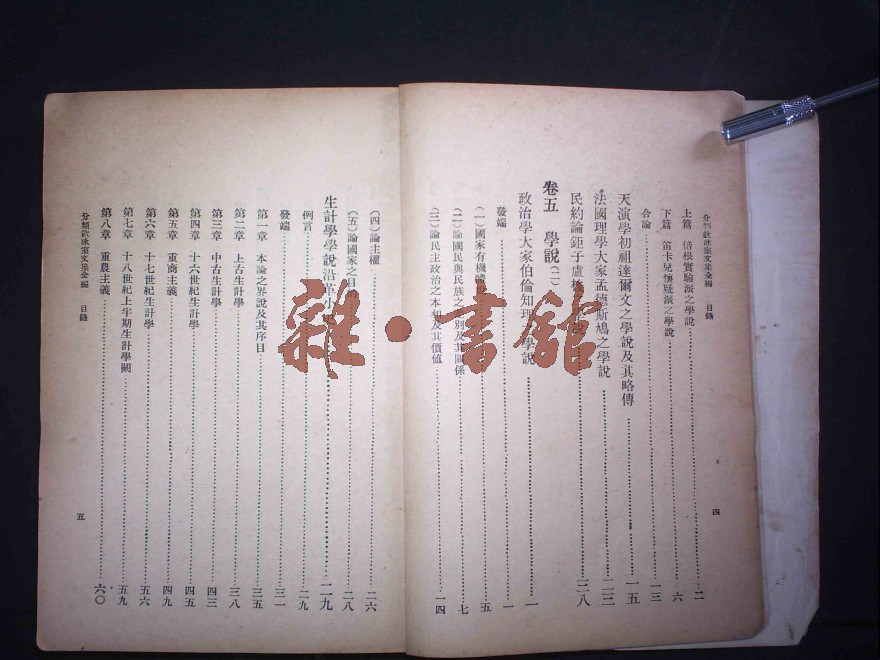 分類飲冰室文集全編 目錄 四
上篇 倍根實驗派之學說 二
下篇 笛卡兒懷疑派之學說 六
合論 一三
天演學初祖達爾文之學說及其略傳 一五
法國理學大家孟德斯鳩之學說 二三
民約論鉅子盧梭之學說 二八
卷五 學說(二)
政治學大家伯倫知理之學說 一
發端 一
(一)國家有機體 五
(二)論國民與民族之別及其關係 七
(三)論民主政治之本相及其價值 一四
(四)論主權 二六
(五)論國家之目的 二八
生計學學說沿革小史 二九
例言 二九
發端 三一
第一章 本論之界說及其序目 三五
第二章 上古生計學 三八
第三章 中古生計學 四三
第四章 十六世紀生計學 四五
第五章 重商主義 四九
第六章 十七世紀生計學 五六
第七章 十八世紀上半期生計學 五九
第八章 重農主義 六〇
分類飲冰室文集全編 目錄 五
雜·書館